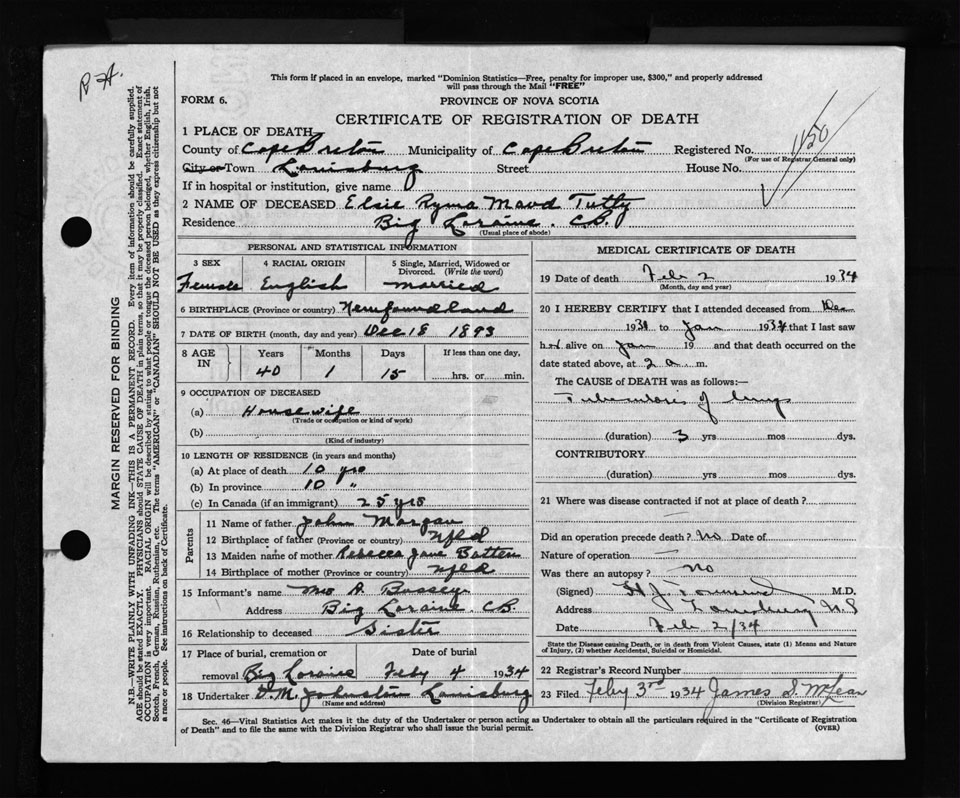 R.A.
This form if placed in an envelope, marked "Dominion Statistics—Free, penalty for improper use, $300," and properly addressed
will pass through the Mail "FREE"
FORM 6.
PROVINCE OF NOVA SCOTIA
CERTIFICATE OF REGISTRATION OF DEATH
1150
1 PLACE OF DEATH
County of Cape Breton Municipality of Cape Breton Registered No.
(For use of Registrar General only)
City or Town Louisburg Street House No.
If in hospital or institution, give name
2 NAME OF DECEASED Elsie Ryma Maud Tutty
Residence Big Loraine. C.B.
(Usual place of abode)
PERSONAL AND STATISTICAL INFORMATION
3 SEX 4 RACIAL ORIGIN 5 Single, Married, Widowed or
Divorced. (Write the word)
Female English Married
6 BIRTHPLACE (Province or country) Newfoundland
7 DATE OF BIRTH (month, day and year) Dec 18 1893
8 AGE IN Years Months Days If less than one day,
40 1 15 hrs. or min.
9 OCCUPATION OF DECEASED
(a) Housewife
(Trade or occupation or kind of work)
(b)
(Kind of industry)
10 LENGTH OF RESIDENCE (in years and months)
(a) At place of death 10 yrs
(b) In province 10 "
(c) In Canada (if an immigrant) 25 yrs
Parents
11 Name of father John Morgan
12 Birthplace of father (Province or country) Nfld
13 Maiden name of mother Rebecca Jane Batten
14 Birthplace of mother (Province or country) Nfld
15 Informant's name Mrs A. Bossey
Address Big Loraine. C.B.
16 Relationship to deceased Sister
17 Place of burial, cremation or Date of burial
removal Big Loraine Feby 4 1934
18 Undertaker D.M. Johnston Louisburg
(Name and address)
MEDICAL CERTIFICATE OF DEATH
19 Date of death Feb 2 1934
(Month, day and year)
20 I HEREBY CERTIFY that I attended deceased from Dec
1931 to Jan 1934 that I last saw
her alive on Jan 19 and that death occurred on the
date stated above, at 2 a m.
The CAUSE of DEATH was as follows:—
Tuberculosis of lungs
(duration) 3 yrs mos dys.
CONTRIBUTORY
(duration) yrs mos dys.
21 Where was disease contracted if not at place of death?
Did an operation precede death? No Date of
Nature of operation —
Was there an autopsy? No
(Signed) H.J. Townsend M.D.
Address Louisburg N.S
Date Feb 2/34
State the Disease causing Death, or in death from Violent Causes, state (1) Means and Nature
of Injury, (2) whether Accidental, Suicidal or Homicidal.
22 Registrar's Record Number
23 Filed Feby 3rd 1934 James S. McLean
(Division Registrar)
Sec. 46—Vital Statistics Act makes it the duty of the Undertaker or person acting as Undertaker to obtain all the particulars required in the "Certificate of Registration
of Death" and to file the same with the Division Registrar who shall issue the burial permit. (OVER)
MARGIN RESERVED FOR BINDING
N.B.—WRITE PLAINLY WITH UNFADING INK—THIS IS A PERMANENT RECORD. Every item of information should be carefully supplied.
AGE should be stated EXACTLY. PHYSICIANS should STATE CAUSE OF DEATH in plain terms, so that it may be properly classified. Exact statement of
OCCUPATION is very important. RACIAL ORIGIN will be described by stating to what people or tongue the deceased person belonged, whether English, Irish,
Scotch, French, German, Russian, Ruthenian, etc. The terms "AMERICAN" or "CANADIAN" SHOULD NOT BE USED as they express citizenship but not
a race or people. See instructions on back of Certificate.